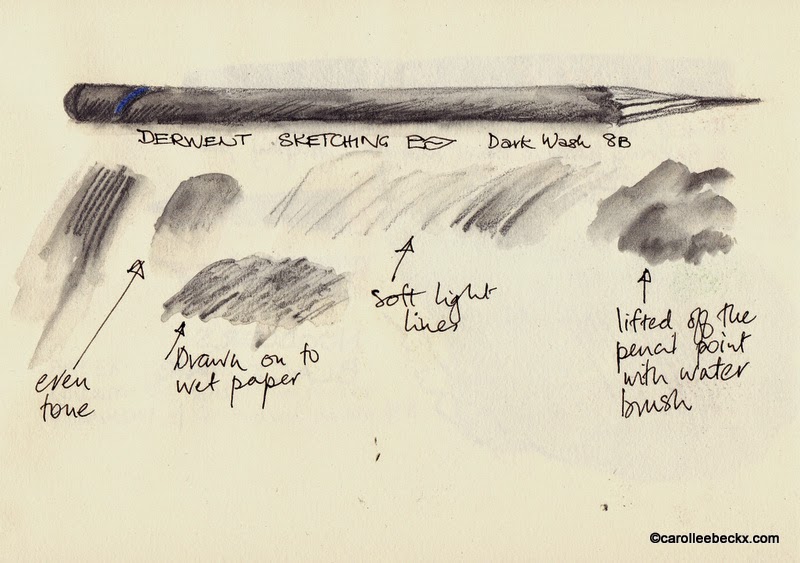 DERWENT SKETCHING Dark Wash 8B
even
tone
Drawn on to
wet paper
soft light
lines
lifted off the
pencil point
with water
brush
©carolleebeckx.com